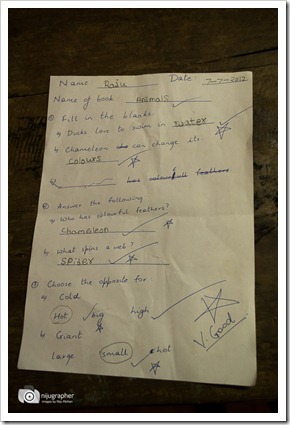 Name: Raju Date: 7-7-2012
Name of book Animals
① Fill in the blanks
a) Ducks love to swim in water
b) Chameleon can change its
colours
c) has colourful feathers
② Answer the following
a) Who has colourful feathers?
Chameleon
b) What spins a web?
Spider
③ Choose the opposite for
a) Cold
Hot big high
b) Giant
large small hot
V. Good
nijugrapher
images by Niju Mohan